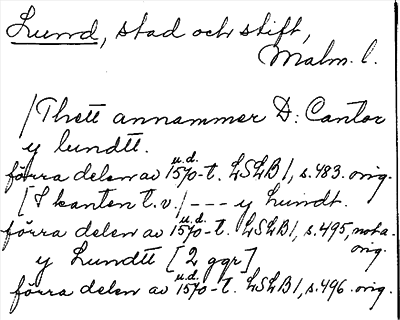 Lund, stad och stift,
Malm. l.
/Thett annammer D: Cantor
y lundtt.
förra delen av 1570-t. u.d. LSLB 1, s.483. orig.
[I kanten t.v./ --- y Lundt.
förra delen av 1570-t. u.d. LSLB 1, s.495, nota. orig.
y Lundtt [2 ggr]
förra delen av 1570-t. u.d. LSLB 1, s.496. orig.